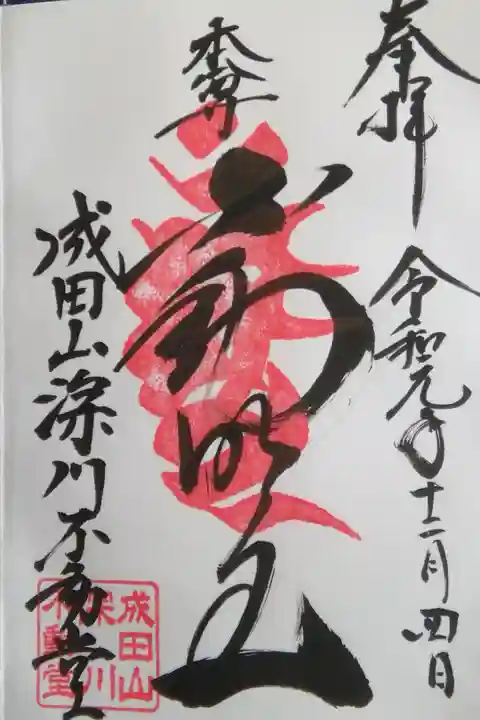 奉拝
令和元年十二月四日
本尊
不動明王
成田山深川不動堂
成田山
深川
不動堂